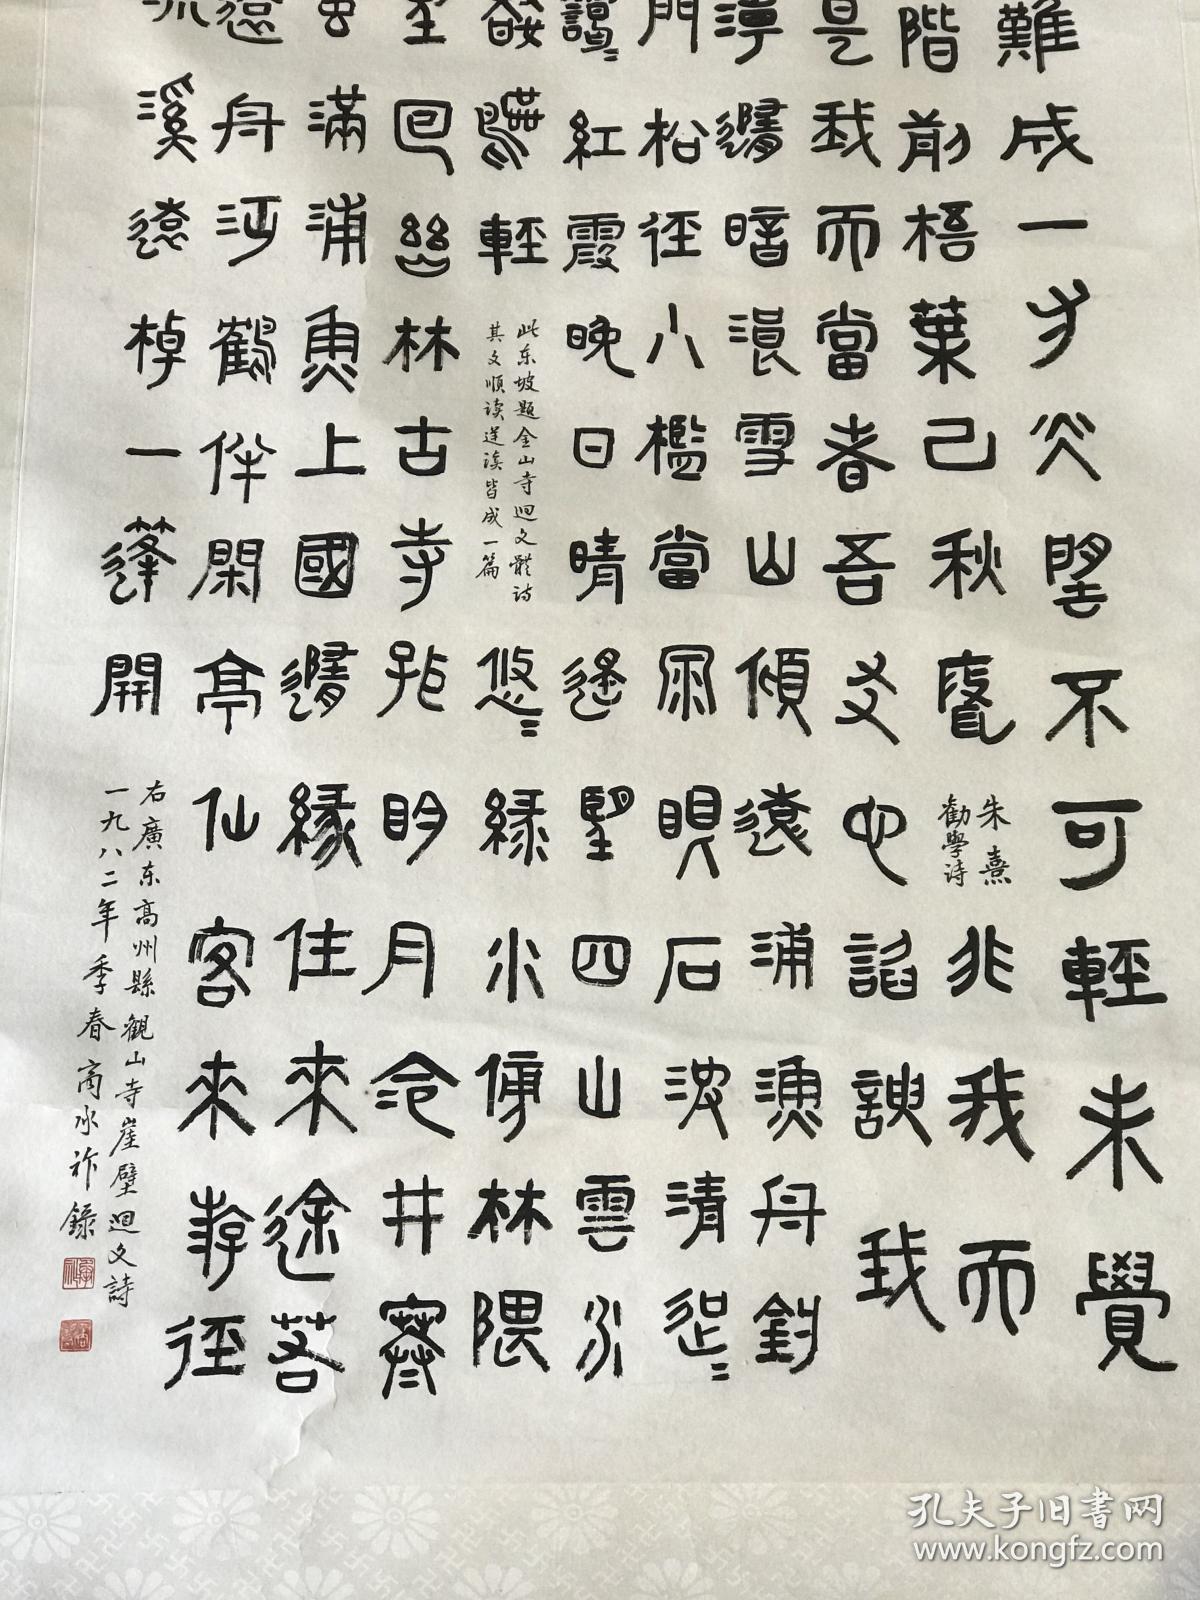 難成一寸光陰不可輕未覺
階前梧葉已秋聲
朱熹
勸學诗
非我而
是我而當者吾友也諂諛我
潮隨暗浪雪山傾遠浦漁舟釣
門松徑小檻當泉眼石波清迢迢
靄靄紅霞晚日晴遙望四山雲
數鷗輕
此东坡題金山寺迴文體诗
其文順读逆读皆成一篇
悠悠綠水傍林隈
望回幽林古寺孤明月冷井寒
滿浦魚上國隨緣住來途若
遠舟泛鶴伴閑亭仙客來游徑
流溪遠棹一篷開
右廣东高州縣觀山寺崖壁迴文詩
一九八二年季春商承祚錄
孔夫子旧书网
www.kongfz.com